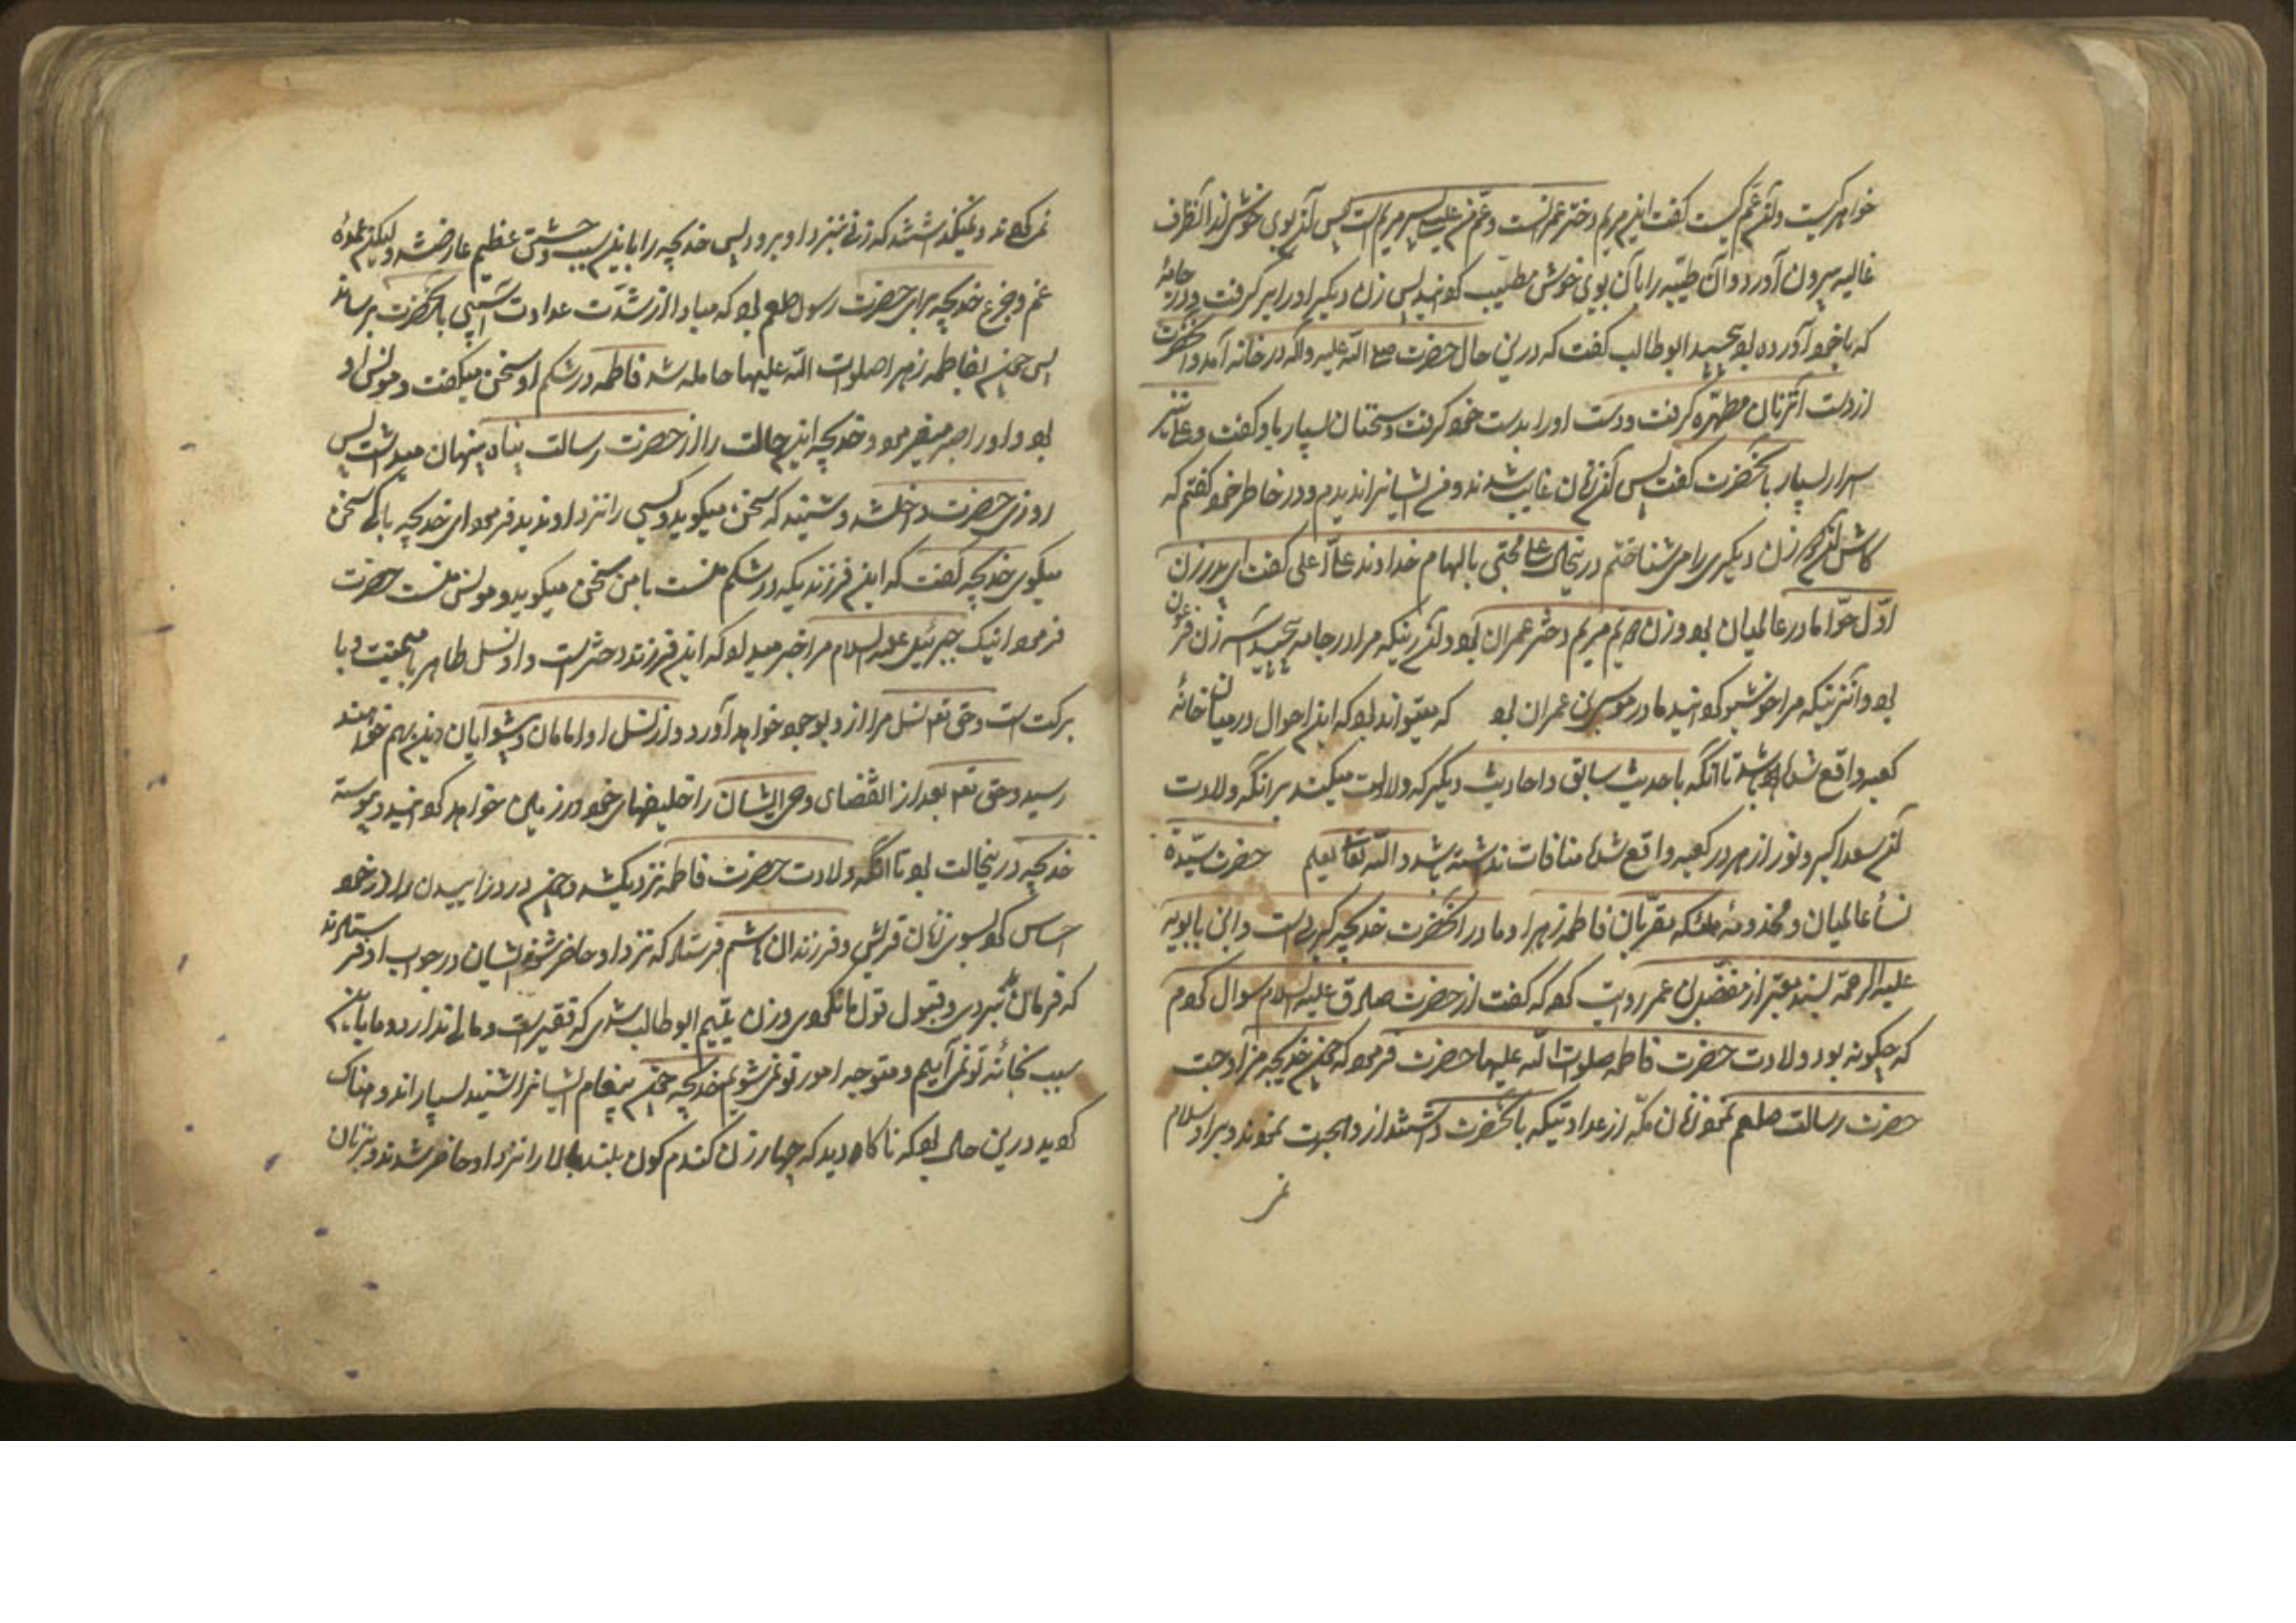 خواهر کیست و آن عم کیست گفت این مریم دختر عمرانست و عم من عیسی پسر مریم است پس آن بوی خوش از آن ظرف
غالیه بیرون آورد و آن طیبه را بآن بوی خوش مطیب کردانید پس زن دیکر او را بر گرفت و در جامهٔ
که با خود آورده بود پیچید ابوطالب گفت که درین حال حضرت صلی الله علیه و آله در خانه آمد و آنحضرت
از دست آن زنان مطهره گرفت و دست او را بدست خود کرفت و سخنان بسیار باو گفت و علی نیز
اسرار بسیار بآنحضرت گفت پس آن زنان غایب شدند و من ایشانرا ندیدم و در خاطر خود گفتم که
کاش آن دو زن دیکری را می شناختم درینحال علی مجتبی بالهام خداوند علی اعلی گفت ای پدر زن
اوّل حوّا مادر عالمیان بود و زن دویم مریم دختر عمران بود و آن زنیکه مرا در جامه پیچید آسیه زن فرعون
بود و آن زنیکه مرا خوشبو کردانید مادر موسی بن عمران بود که میتواند بود که این احوال در میان خانهٔ
کعبه واقع شده باشد تا آنکه با حدیث سابق و احادیث دیکر که دلالت میکند بر آنکه ولادت
آن سعد اکبر و نور ازهر در کعبه واقع شده منافات نداشته باشد و الله تعالی یعلم حضرت سیّدهٔ
نسأ عالمیان و مخدومهٔ ملائکه مقرّبان فاطمه زهرا و مادر آنحضرت خدیجه کبری است و ابن بابویه
علیه الرحمه بسند معتبر از مفضّل بن عمر روایت کرده که گفت از حضرت صادق علیه السلام سوال کردم
که چکونه بود ولادت حضرت فاطمه صلوات الله علیها حضرت فرمود که چون خدیجه مزاوجت
حضرت رسالت صلعم نمود زنان مکّه از عداوتیکه بآنحضرت داشتند از او هجرت نمودند و بر او سلام
نمی
نمی کردند و نمیگذاشتند که زنی بنزد او برود پس خدیجه را باین سبب وحشتی عظیم عارض شد و لیکن عمدهٔ
غم و جزع خدیجه برای حضرت رسول صلعم بود که مبادا از شدّت عداوت آسیبی بآنحضرت برسانند
پس چون بفاطمه زهرا صلوات الله علیها حامله شد فاطمه در شکم او سخن میکفت و مونس او
بود و او را صبر میفرمود و خدیجه این حالت را از حضرت رسالت پناه پنهان میداشت پس
روزی حضرت داخل شد و شنید که سخن میکوید و کسی را نزد او ندید فرمود ای خدیجه با که سخن
میکوی خدیجه گفت که این فرزندیکه در شکم منست با من سخن میکوید و مونس منست حضرت
فرمود اینک جبرئیل علیه السلام مرا خبر میدهد که این فرزند دختر است و او نسل طاهر با میمنت و با
برکت است و حق تعالی نسل مرا از او بوجود خواهد آورد و از نسل او امامان و پیشوایان دین بهم خواهند
رسید و حق تعالی بعد از انقضای وحی ایشان را خلیفهای خود در زمین خواهد کردانید و پیوسته
خدیجه درینحالت بود تا آنکه ولادت حضرت فاطمه نزدیک شد و چون درد زاییدن را در خود
احساس کرد بسوی زنان قریش و فرزندان هاشم فرستاد که نزد او حاضر شوند ایشان در جواب او فرستادند
که فرمان ما نبردی و قبول قول ما نکردی و زن یتیم ابوطالب شدی که فقیر است و مالی ندارد و ما باین
سبب بخانه تو نمی آییم و متوجه امور تو نمی شویم خدیجه چون پیغام ایشانرا شنید بسیار اندوهناک
کردید درین حال بود که ناکاه دید که چهار زن کندم کون بلند بالا را نزد او حاضر شدند و بزنان